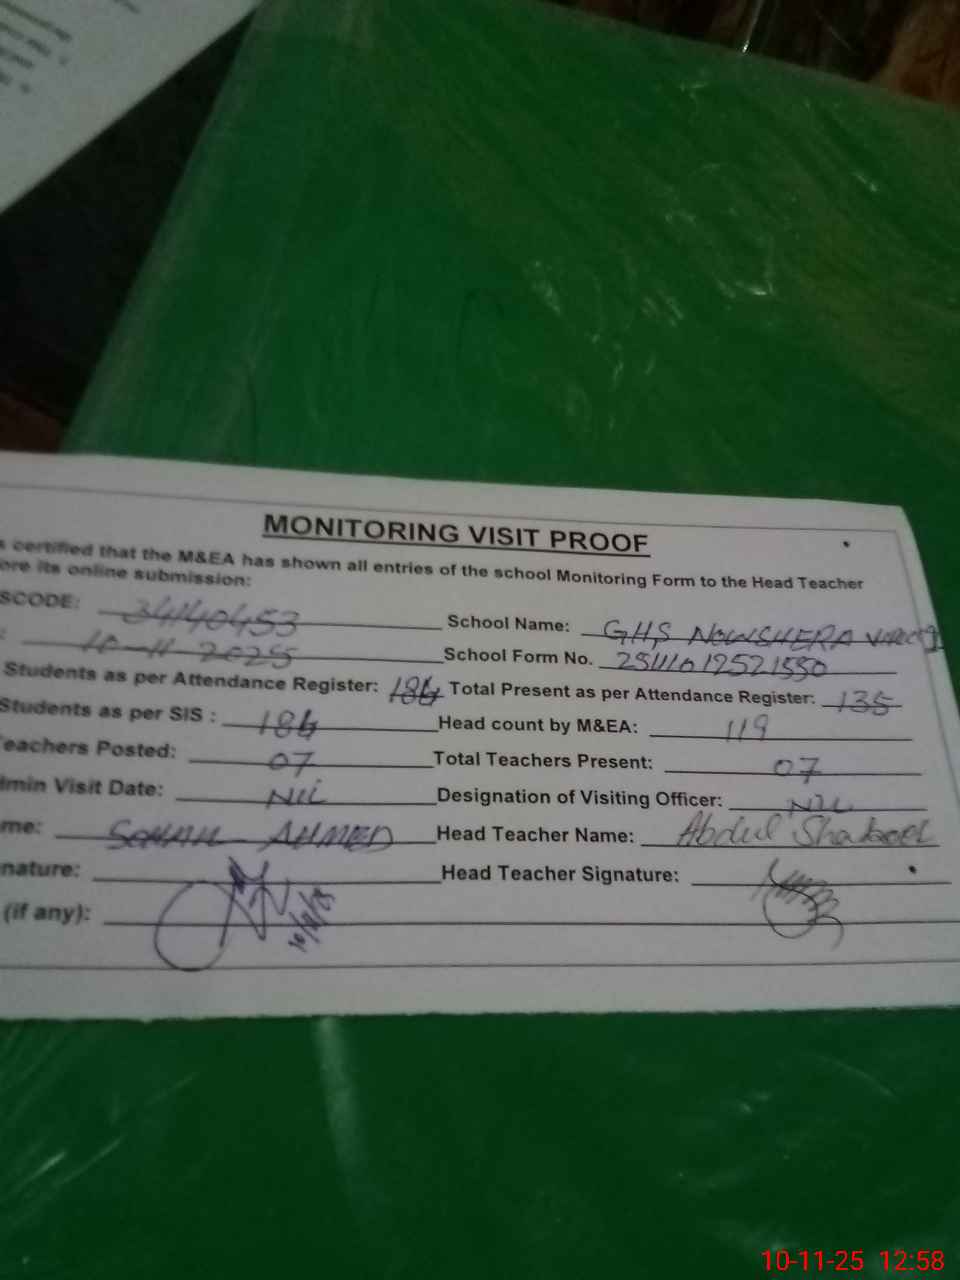 MONITORING VISIT PROOF
s certified that the M&EA has shown all entries of the school Monitoring Form to the Head Teacher
ore its online submission:
SCODE: 34140453 School Name: GHS NOWSHERA
: 10-11-2025 School Form No.
Students as per Attendance Register: 184 Total Present as per Attendance Register: 135
Students as per SIS : 184 Head count by M&EA: 119
eachers Posted: 07 Total Teachers Present: 07
min Visit Date: Nil Designation of Visiting Officer: NIL
me: SOHAIL AHMED Head Teacher Name: Abdul Shakoor
nature: Head Teacher Signature:
(if any):
10-11-25 12:58